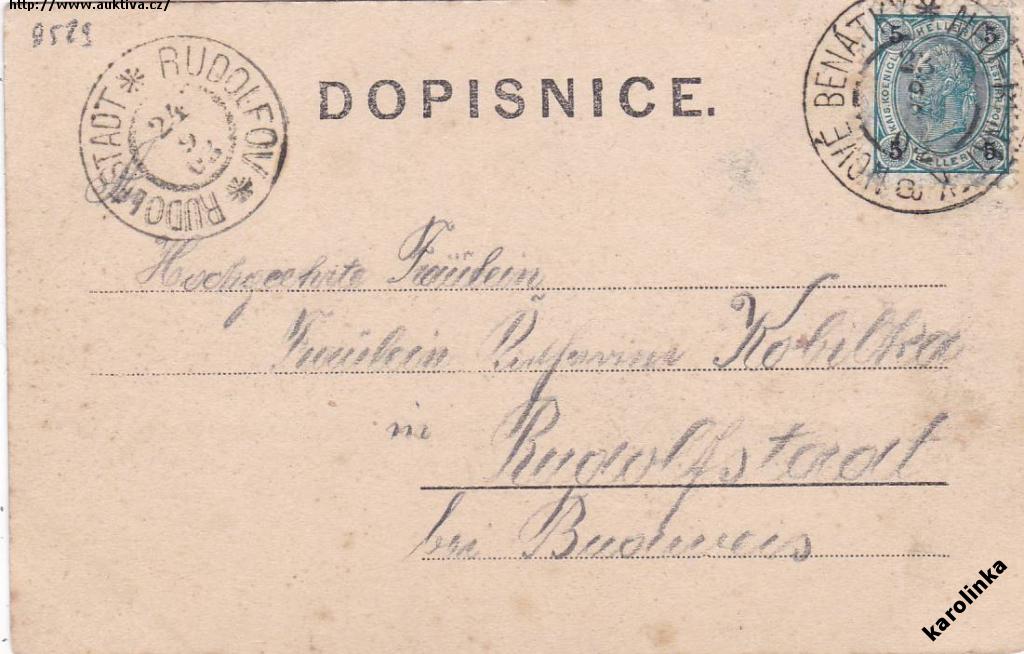 http://www.auktiva.cz/
8529
DOPISNICE.
RUDOLFOV * RUDOLFSTADT *
24
9
03
NOVÉ BENÁTKY *
5 HELLER 5
KAIS. KOENIGL.
5 HELLER 5
Hochgeehrte Fräulein
Fräulein Kobilka
in Rudolfstadt
bei Budweis
karolinka